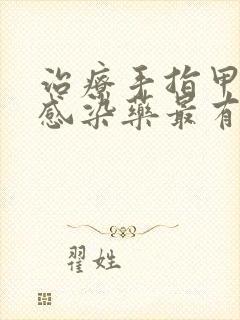 治疗手指甲
感染药最有
翟姓